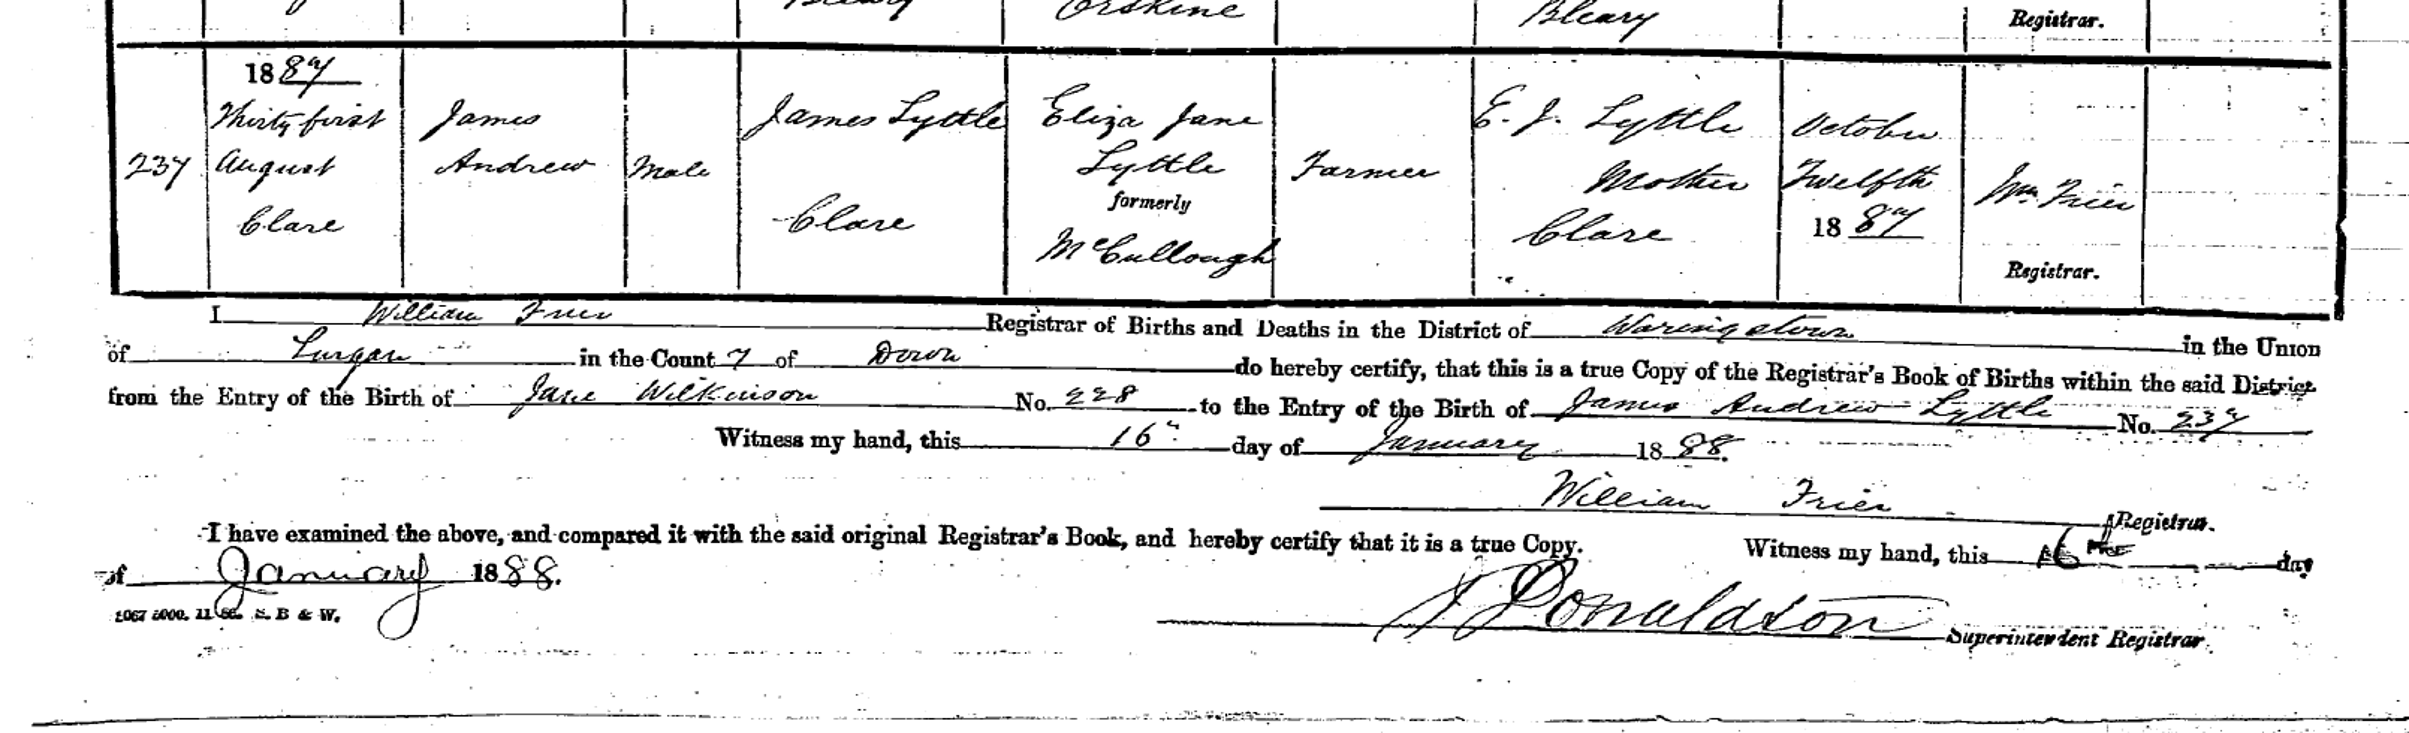 Erskine
Bleary
Registrar.
1887
Thirty first
August
Clare
237
James
Andrew
Male
James Lyttle
Clare
Eliza Jane
Lyttle
formerly
McCullough
Farmer
E. J. Lyttle
Mother
Clare
October
Twelfth
1887
Wm. Frier
Registrar.
I William Frier Registrar of Births and Deaths in the District of Waringstown in the Union
of Lurgan in the County of Down do hereby certify, that this is a true Copy of the Registrar's Book of Births within the said District
from the Entry of the Birth of Jane Wilkinson No. 228 to the Entry of the Birth of James Andrew Lyttle No. 237
Witness my hand, this 16th day of January 1888.
William Frier Registrar.
I have examined the above, and compared it with the said original Registrar's Book, and hereby certify that it is a true Copy. Witness my hand, this 16th day
of January 1888.
Donaldson Superintendent Registrar.
S. B & W.